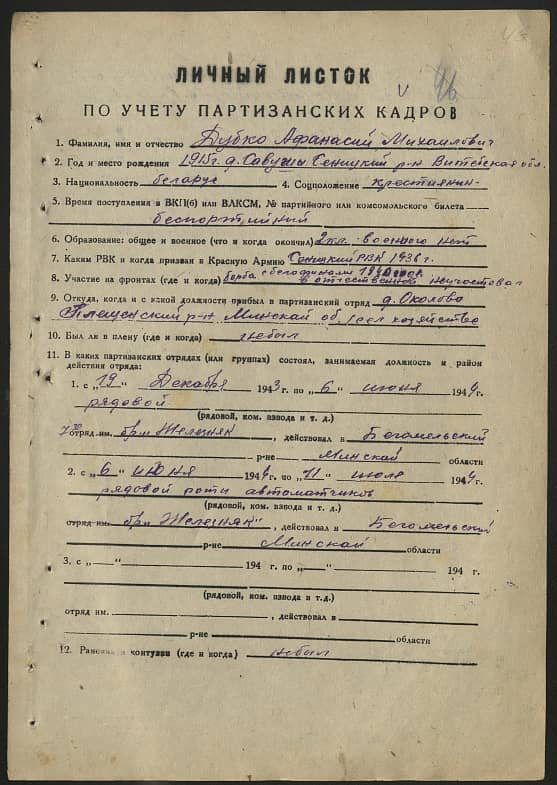 46
ЛИЧНЫЙ ЛИСТОК
V 46
ПО УЧЕТУ ПАРТИЗАНСКИХ КАДРОВ
1. Фамилия, имя и отчество Дубко Афанасий Михаилович
2. Год и место рождения 1915г. д. Савуты Сеницкий р-н Витебская обл.
3. Национальность беларус 4. Соцположение крестиянин-
5. Время поступления в ВКП(б) или ВЛКСМ, № партийного или комсомольского билета —
беспортийный
6. Образование: общее и военное (что и когда окончил) 2 кл. военного нет
7. Каким РВК и когда призван в Красную Армию Сеницкий РВК 1936 г.
8. Участие на фронтах (где и когда) борба с белофинами в отечественной неучаствовал
9. Откуда, когда и с какой должности прибыл в партизанский отряд д. Околово
Плещенский р-н Минскай об, хозяйство
10. Был ли в плену (где и когда) небыл
11. В каких партизанских отрядах (или группах) состоял, занимаемая должность и район
действия отряда:
1. с „19" Декабря 1943 г. по „6" июня 1944 г.
рядовой
(рядовой, ком. взвода и т. д.)
отряд им. бри Железняк, действовал в Бегомельский
р-не Минской области
2. с „6" июня 1944 г. по „11" июля 1944 г.
рядовой роты автоматчиков
(рядовой, ком. взвода и т. д.)
отряд им. бри Железняк", действовал в Бегомельский
р-не Минской области
3. с „—" 194 г. по „—" 194 г.
(рядовой, ком. взвода и т.д.)
отряд им. действовал в
р-не области
12. Ранения и контузии (где и когда) небыл